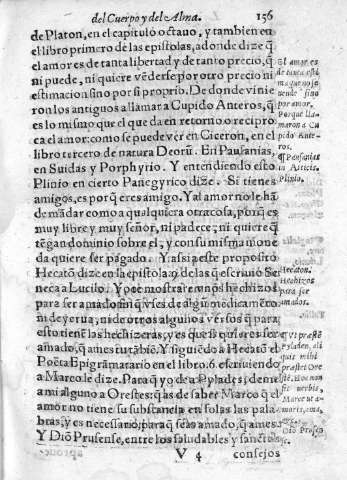 del Cuerpo y del Alma. 156
de Platon, en el capitulo octauo, y tambien en
el libro primero de las epistolas, adonde dize q̃
el amor es de tanta libertad y de tanto precio, q̃
ni puede, ni quiere vẽderse por otro precio ni
estimacion sino por si proprio. De donde vinie
ron los antiguos a llamar a Cupido Anteros, q̃
es lo mismo que el que da en retorno o recipro
ca el amor: como se puede ver en Ciceron, en el
libro tercero de natura Deorũ. En Pausanias,
en Suidas y Porphyrio. Y entendiendo esto
Plinio en cierto Panegyrico dize. Si tienes
amigos, es porq̃ eres amigo. Y al amor no le hã
de mãdar como a qualquiera otra cosa, porq̃ es
muy libre y muy señor, ni padece, ni quiere q̃
tẽgan dominio sobre el, y con su misma mone
da quiere ser pagado. Y assi a este proposito
Hecatõ dize en la epistola 9. de las q̃ escriuio Se
neca a Lucilo. Yo te mostrare vnos hechizos
para ser amado sin q̃ vses de algũ medicamẽto
ni de yerua, ni de otros alguno a versos q̃ para
esto tienẽ los hechizeras, y es que si quieres ser
amado, q̃ ames tu tãbiẽ. Y siguiẽdo a Hecatõ el
Poëta Epigrãmatario en el libro. 6. escriuiendo
a Marco le dize. Para q̃ yo de a Pylades; deme
a mi alguno a Orestes: q̃ as de saber Marco q̃ el
amor no tiene su substancia en solas las pala
bras, y es necessario, porq̃ seas amado, q̃ ames.
Y Diõ Prusense, entre los saludables y sanctos
V 4 consejos
El amor es
de tanta esti
ma que no se
vende sino
por amor.
Porque lla
maron a Cu
pido Ante-
ros.
¶ Pausanias
in Atticis.
Plinio.
Hecaton.
Hechizos
para ser
amados.
¶ Vt præstẽ
Pyladen, ali
quis mihi
præstet Ore
stẽ. Hoc non
fit verbis,
Marce: vt a-
meris, ama,
Diõ Prusen